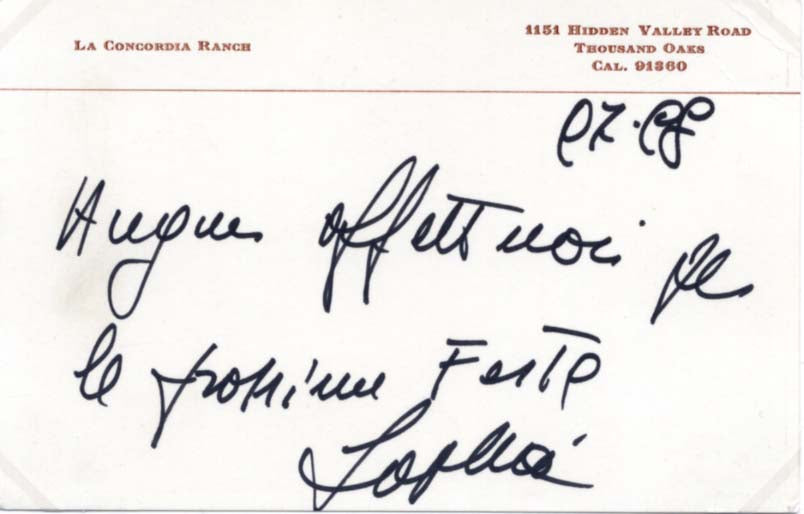 LA CONCORDIA RANCH
1151 HIDDEN VALLEY ROAD
THOUSAND OAKS
CAL. 91360
Auguri affettuosi per
le prossime Feste
Sophia